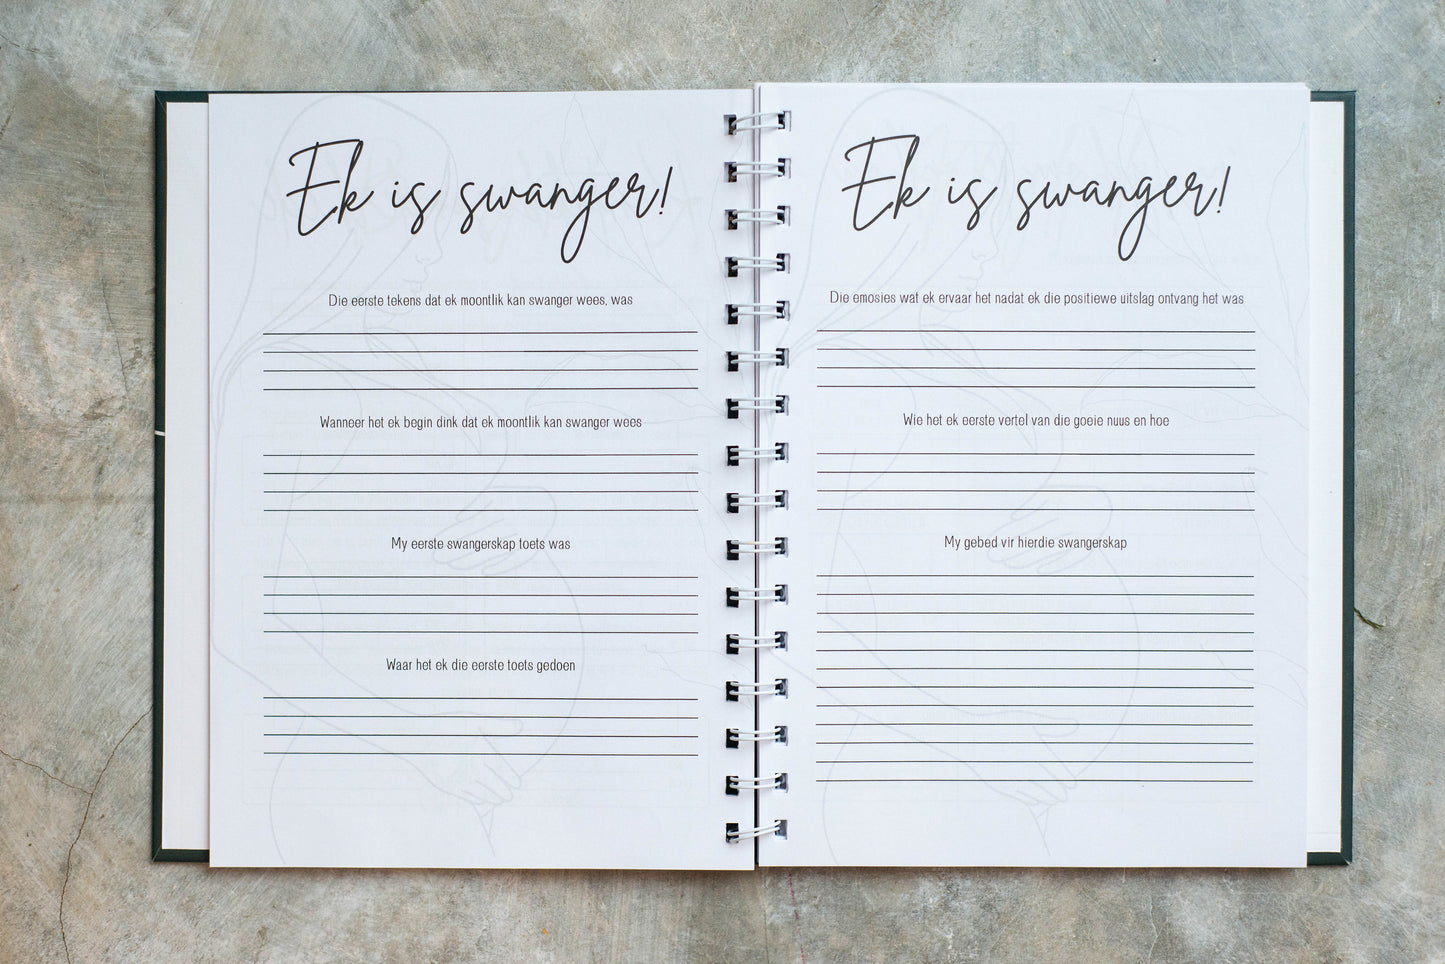 Ek is swanger!
Die eerste tekens dat ek moontlik kan swanger wees, was
Wanneer het ek begin dink dat ek moontlik kan swanger wees
My eerste swangerskap toets was
Waar het ek die eerste toets gedoen
Ek is swanger!
Die emosies wat ek ervaar het nadat ek die positiewe uitslag ontvang het was
Wie het ek eerste vertel van die goeie nuus en hoe
My gebed vir hierdie swangerskap